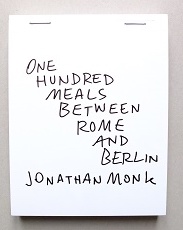 ONE
HUNDRED
MEALS
BETWEEN
ROME
AND
BERLIN
JONATHAN MONK